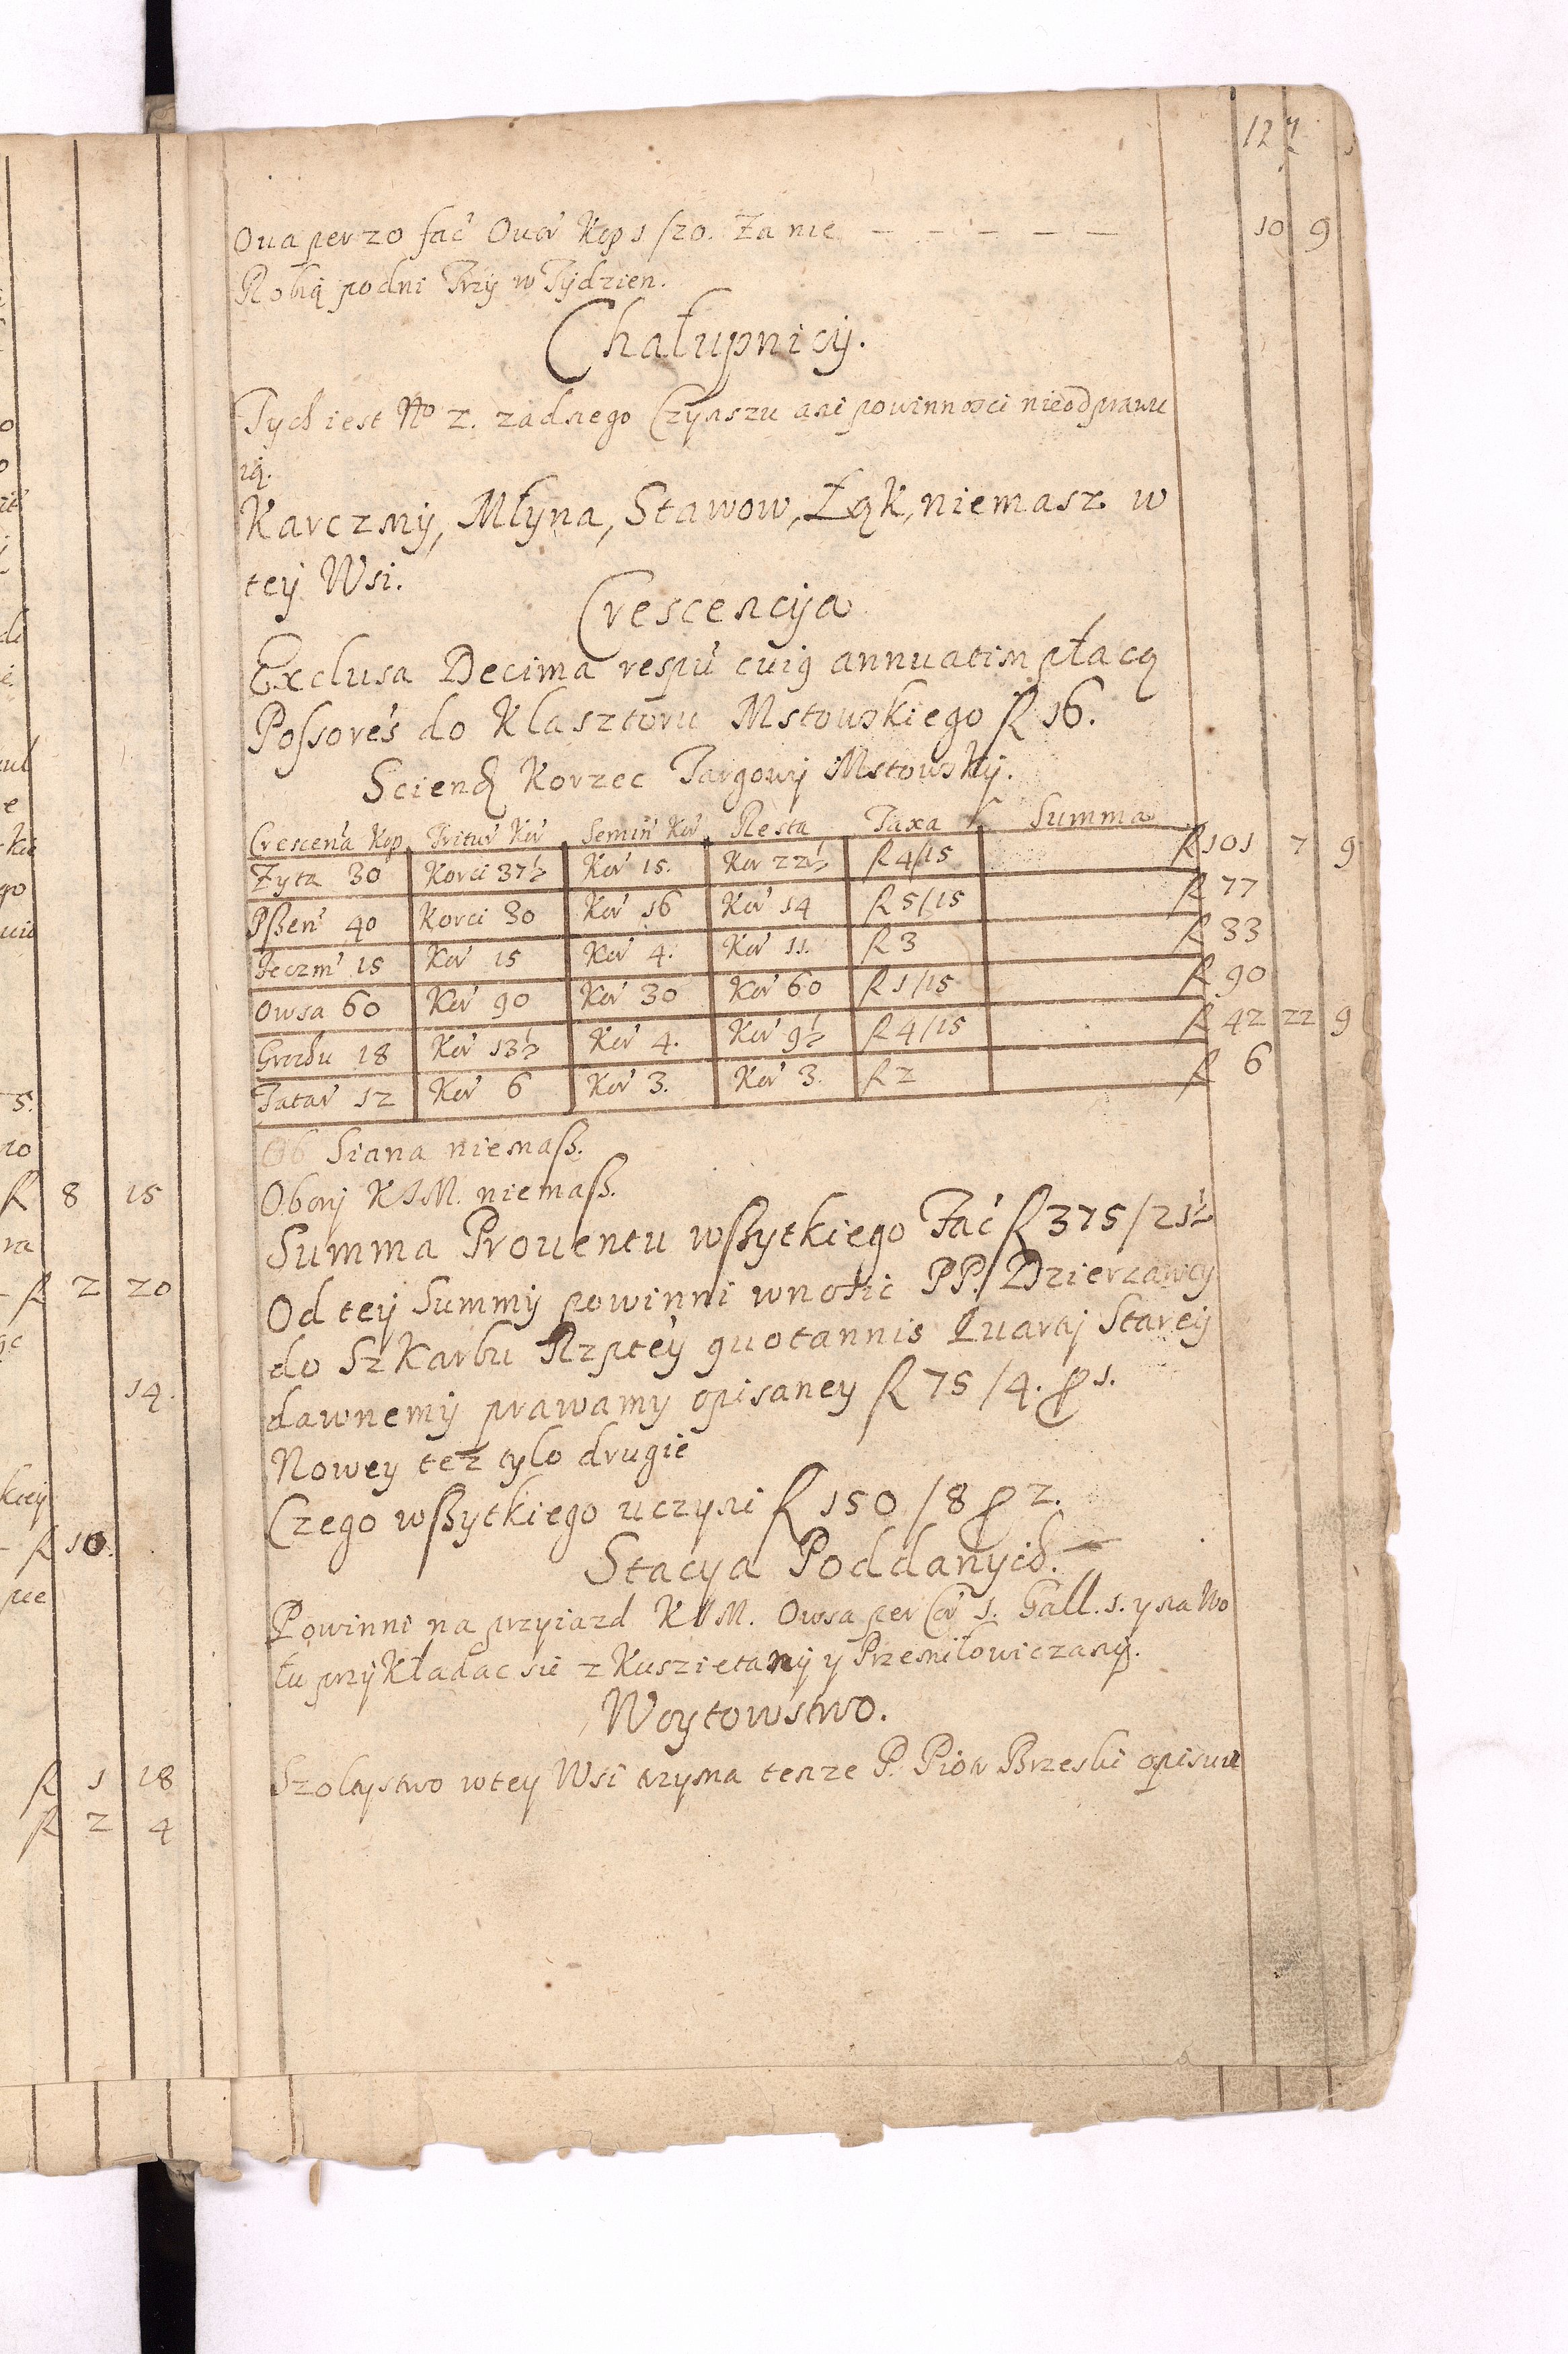 127
Oua per 20 fać Ouor Kop 1/20. Za nie — — — — — 10 9
Robią podni Trzy w Tydzien.
Chałupnicy.
Tych iest No 2. zadnego Czynszu ani powinnosci nieodprawu
ią.
Karczmy, Młyna, Stawow, Łąk, niemasz w
tey Wsi.
Crescencya
Exclusa Decima respu cuig annuatim płacą
Possores do Klasztoru Mstowskiego R 16.
Sciend Korzec Targowy Mstowsky.
Crescena Kop Tritur Kor Semin Kor Resta Taxa Summa
Zyta 30 Korci 37½ Kor 15. Kor 22½ R 4/15 R 101 7 9
Pszen 40 Korci 30 Kor 16 Kor 14 R 5/15 R 77
Jeczm 15 Kor 15 Kor 4. Kor 11. R 3 R 33
Owsa 60 Kor 90 Kor 30 Kor 60 R 1/15 R 90
Grochu 18 Kor 13½ Kor 4. Kor 9½ R 4/15 R 42 22 9
Tatar 12 Kor 6 Kor 3. Kor 3. R 2 R 6
Ob Siana niemasz.
Obory KJM. niemasz.
Summa Prouentu wszytkiego Fać R 375/21½
Od tey Summy powinni wnosic PP. Dzierzawcy
do Szkarbu Rzptey quotannis Quarty Starey
dawnemy prawamy opisaney R 75/4. 1.
Nowey tez tylo drugie
Czego wszytkiego uczyni R 150/8 2.
Stacya Poddanych.
Powinni na przyiazd KJM. Owsa per Cor 1. Gall. 1. y na Wo
łu przykładac sie z Kuszietamy y Przemiłowiczany.
Woytowstwo.
Szoltystwo w tey Wsi trzyma tenze P. Piotr Brzeski opisuie
R 8 15
R 2 20
14.
R 10.
R 1 18
R 2 4